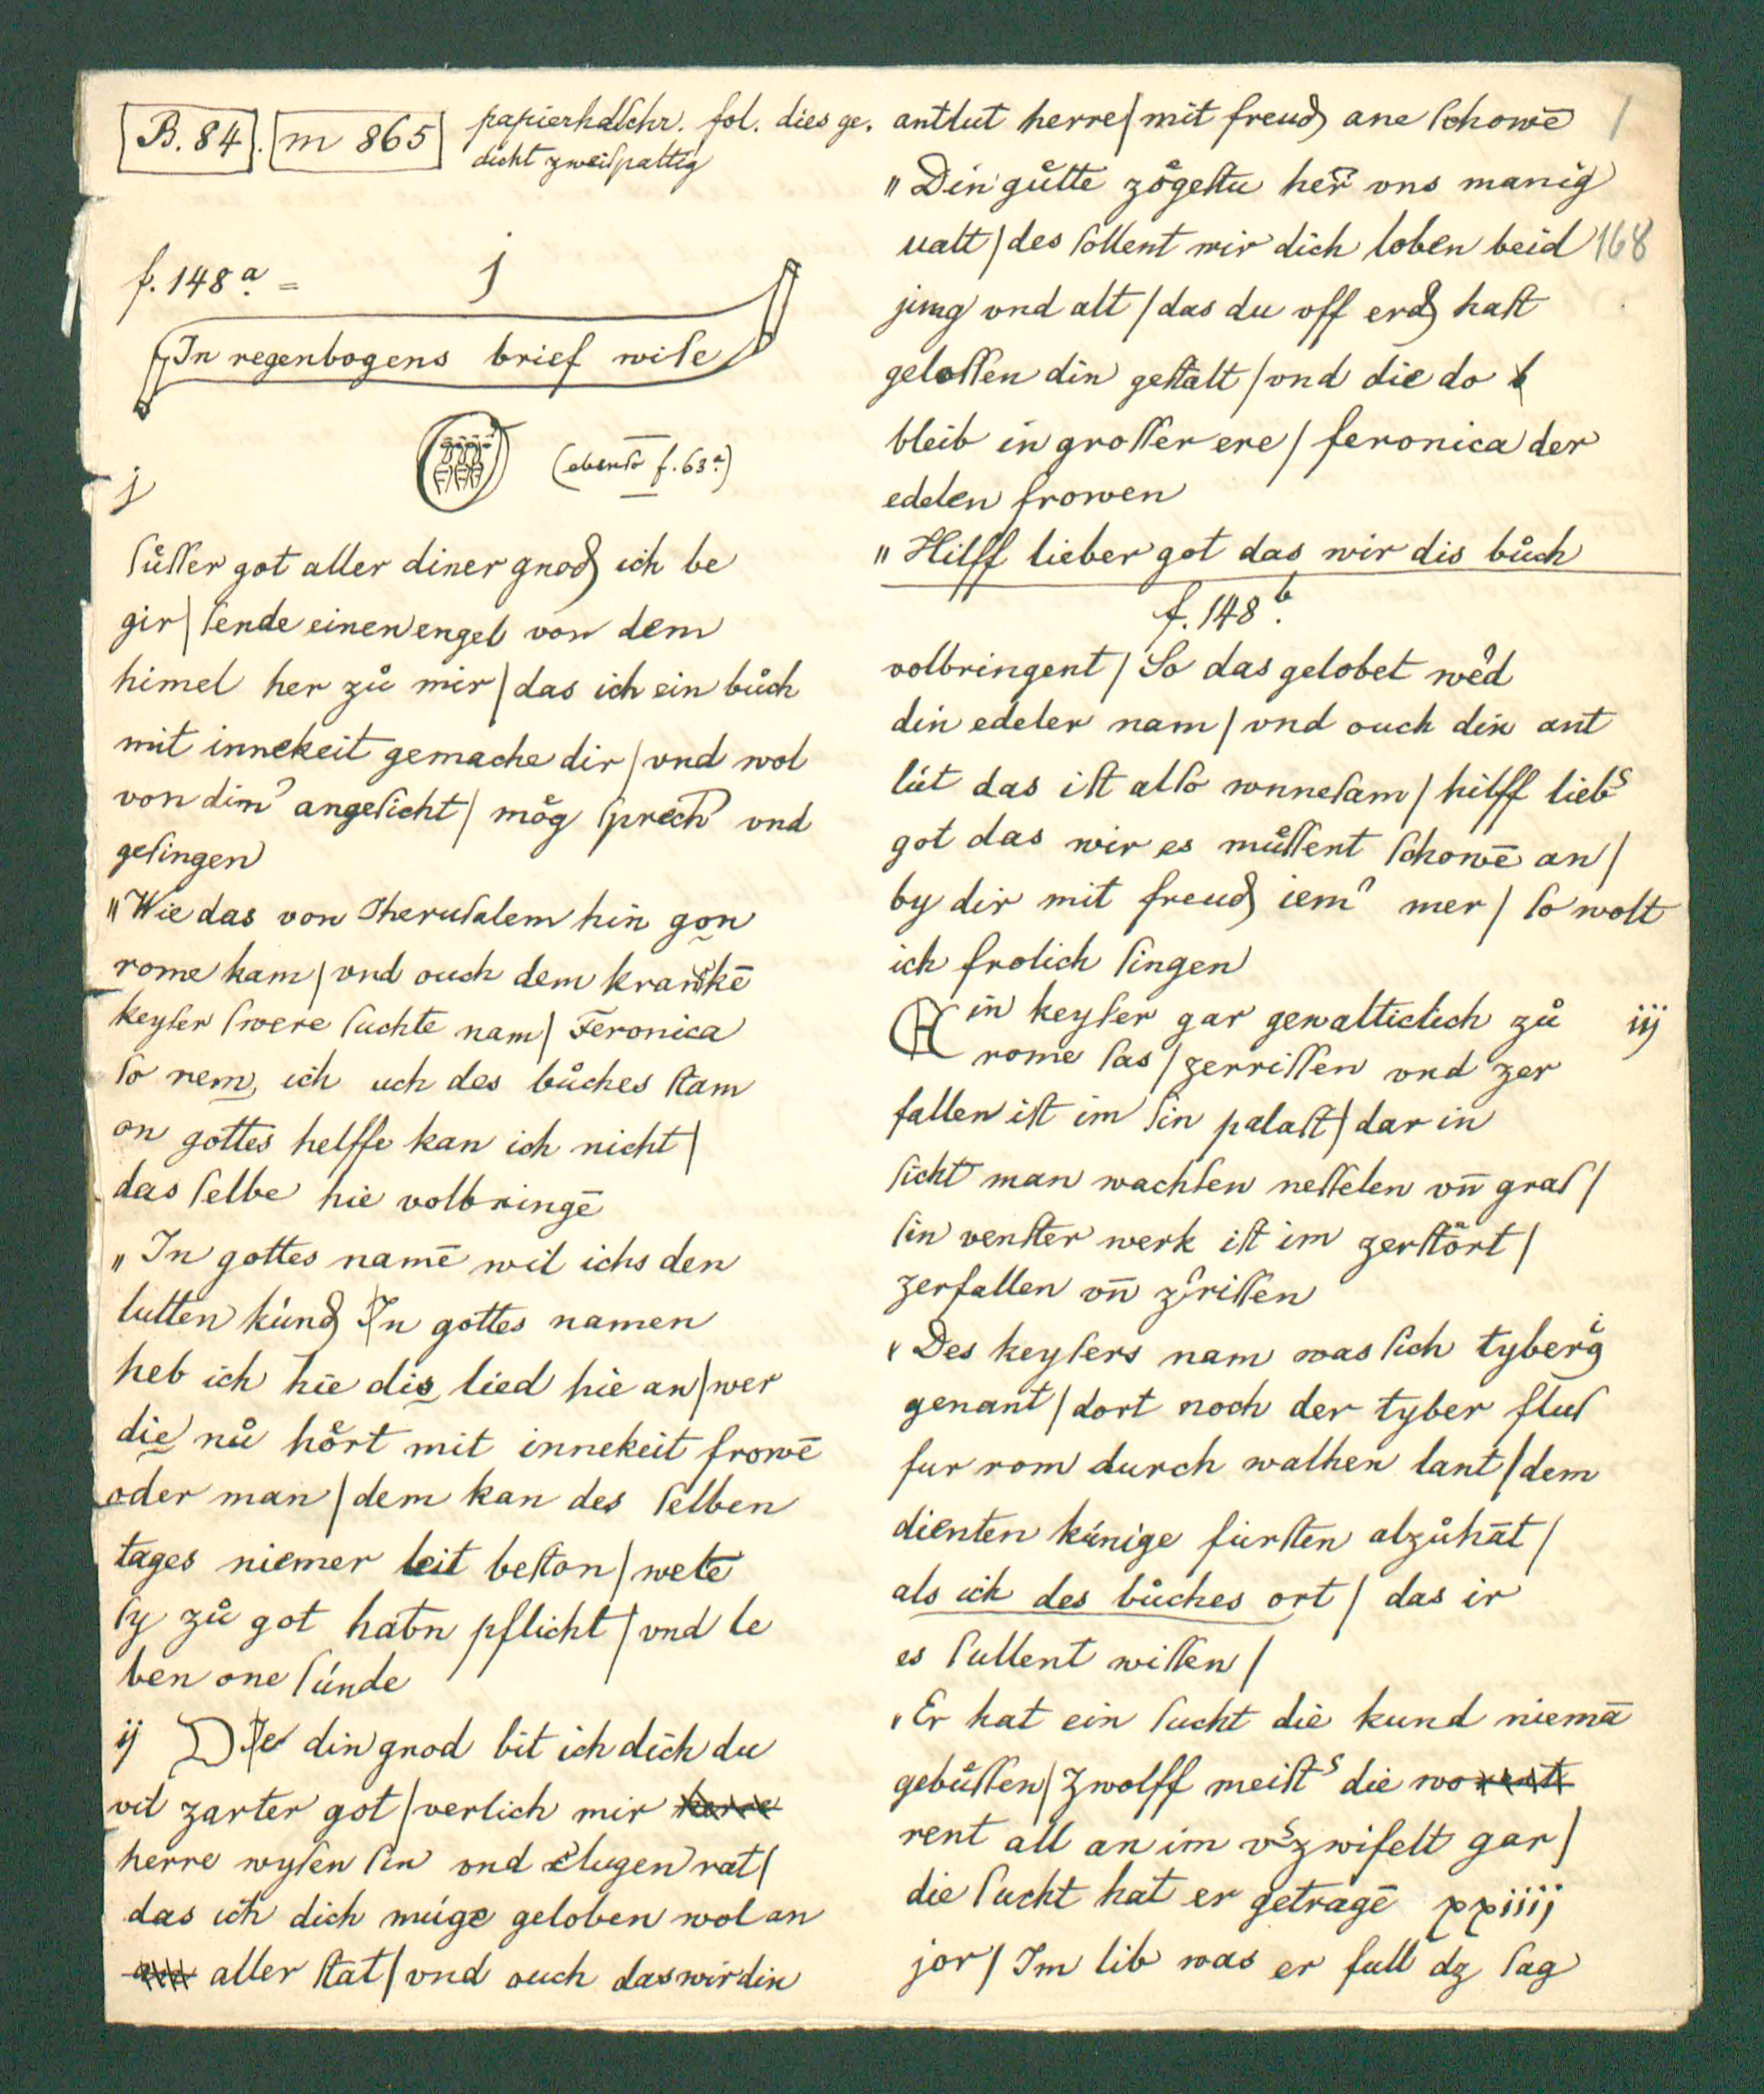 B. 84. m 865 papierhdschr. fol. dies ge.
dicht zweiſpaltig
f. 148 a. = j
In regenbogens brief wiſe
(ebenſo f. 63a)
j
ſůſſer got aller diner gnod ich be
gir / ſende einen engel von dem
himel her zů mir / das ich ein bůch
mit innekeit gemache dir / vnd wol
von dim̄ angeſicht / mög ſprech vnd
geſingen
" Wie das von Jheruſalem hin gon
rome kam / vnd ouch dem krankē
keyſer ſwere ſuchte nam / Feronica
ſo nem ich uch des bůches ſtam
on gottes helffe kan ich nicht /
das ſelbe hie volbringē
" In gottes namē wil ichs den
lutten kúnd In gottes namen
heb ich hie dis lied hie an / wer
die nů hört mit innekeit frowē
oder man / dem kan des ſelben
tages niemer leit beſton / wete
ſy zů got habn pflicht / vnd le
ben one ſúnde
ij DJe din gnod bit ich dich du
vil zarter got / verlich mir herre
herre wyſen ſin vnd clugen rat /
das ich dich múge geloben wol an
aller ſtat / vnd ouch das wir din
antlut herre / mit freud ane ſchowē 1
" Din gůtte zögeſtu her̄ vns manig
ualt / des ſollent wir dich loben beid 168
jung vnd alt / das du vff erd haſt
geloſſen din geſtalt / vnd die do
bleib in groſſer ere / feronica der
edelen frowen
" Hilff lieber got das wir dis bůch
f. 148 b.
volbringent / So das gelobet werd
din edeler nam / vnd ouch din ant
lút das iſt alſo wnneſam / hilff lieber
got das wir es můſſent ſchowē an /
by dir mit freud iemer mer / ſo wolt
ich frolich ſingen
Ein keyſer gar gewalticlich zů iij
rome ſas / zerriſſen vnd zer
fallen iſt im ſin palaſt / dar in
ſicht man wachſen neſſelen vn̄ graſ /
ſin venſter werk iſt im zerſtört /
zerfallen vn̄ zerriſſen
" Des keyſers nam was ſich tyberig
genant / dort noch der tyber fluſ
fur rom durch walhen lant / dem
dienten kúnige fúrſten alzůhāt /
als ich des bůches ort / das ir
es ſullent wiſſen /
" Er hat ein ſucht die kund niemā
gebůſſen / zwolff meiſter die wo
rent all an im verzwifelt gar /
die ſucht hat er getragē xxiiij
jor / Im lib was er full dz ſag